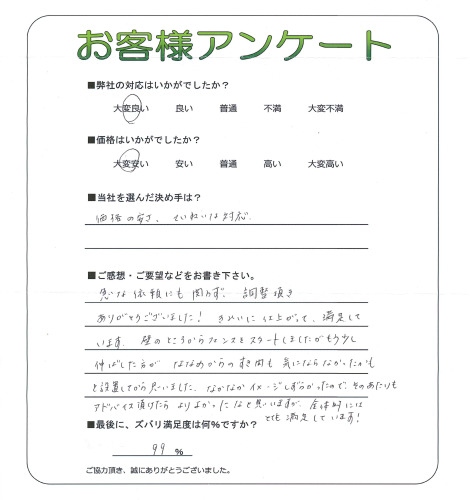 お客様アンケート
■弊社の対応はいかがでしたか？
大変良い 良い 普通 不満 大変不満
■価格はいかがでしたか？
大変安い 安い 普通 高い 大変高い
■当社を選んだ決め手は？
価格の安さ、ていねいな対応
■ご感想・ご要望などをお書き下さい。
急な依頼にも関わず、調整頂き
ありがとうございました！ きれいに仕上がって、満足して
います。壁のところからフェンスをスタートしましたがもう少し
伸ばした方が ななめからのすき間も 気にならなかったかも
と設置してから思いました、なかなかイメージしずらかったので、そのあたりも
アドバイス頂けたら よりよかったなと思いますが、全体的には
とても満足しています！
■最後に、ズバリ満足度は何%ですか？
99 %
ご協力頂き、誠にありがとうございました。